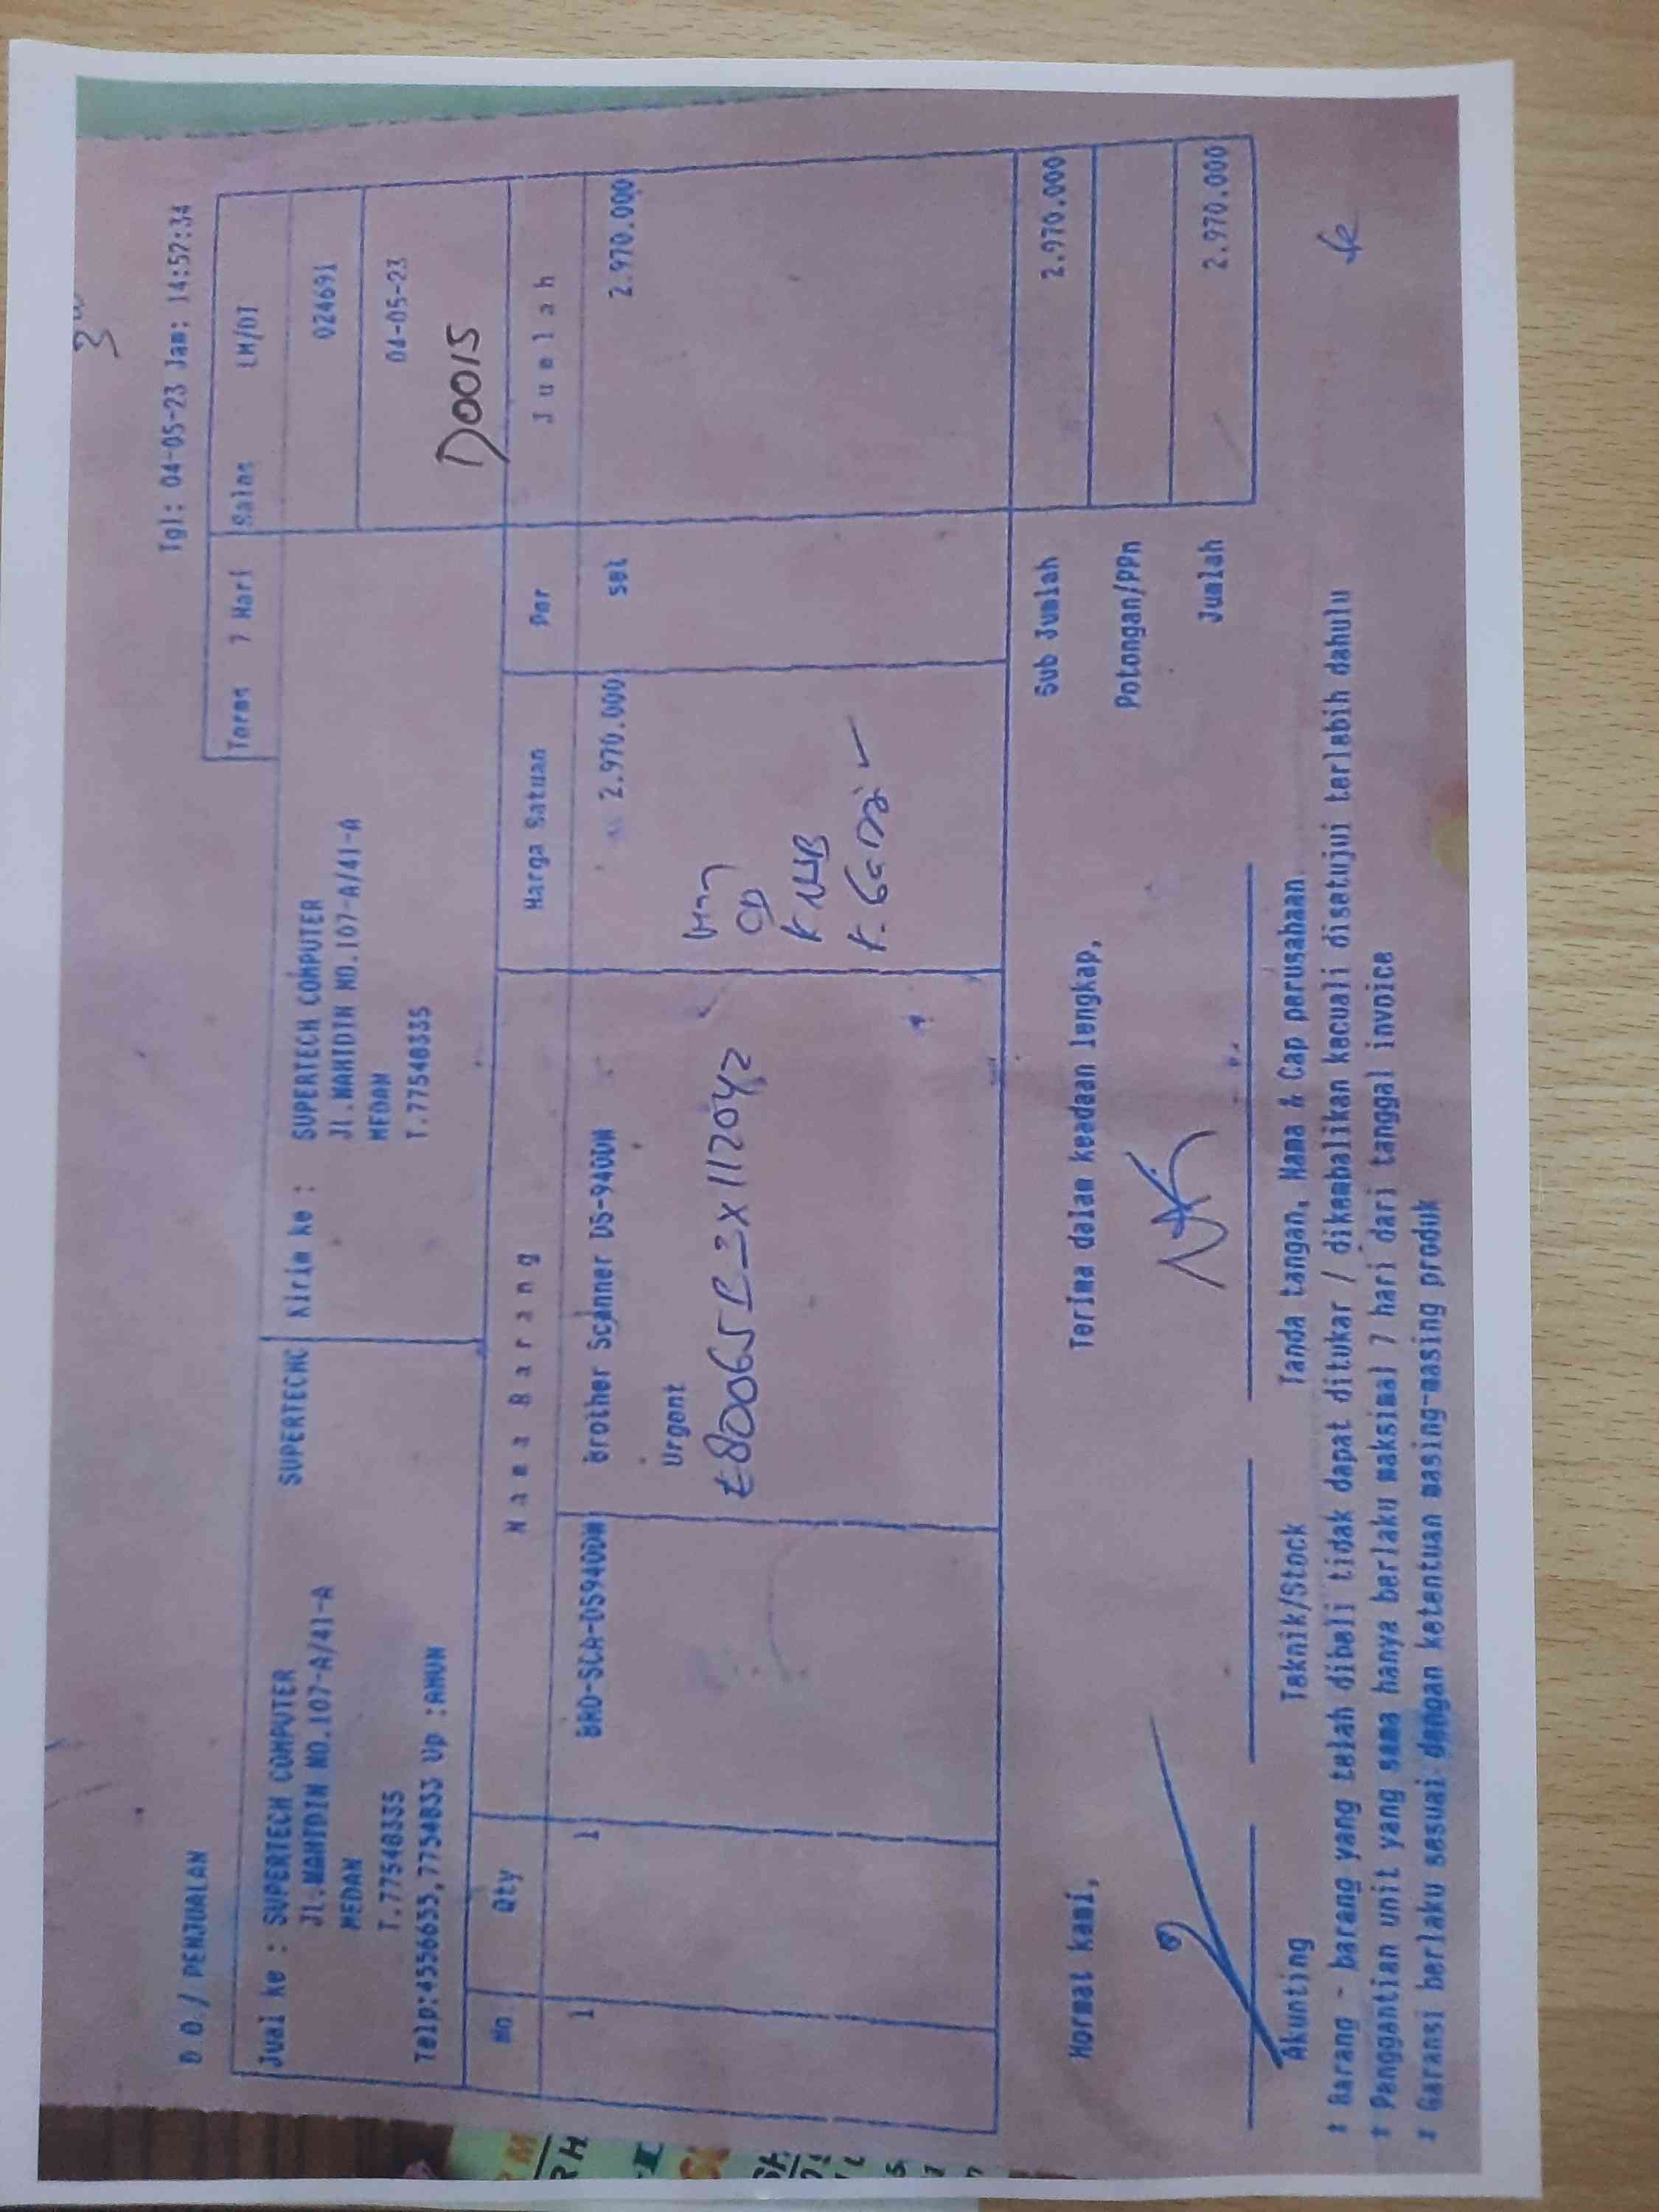 D O / PENJUALAN
Tgl: 04-05-23 Jam: 14:57:34
Terms 7 Hari Sales LM/DI
Jual ke : SUPERTECH COMPUTER SUPERTECHC
Jl.WAHIDIN NO.107-A/41-A
MEDAN
T.77548335
Telp:4556633,7754833 Up :AHUN
Kirim ke : SUPERTECH COMPUTER
Jl.WAHIDIN NO.107-A/41-A
MEDAN
T.77548335
024691
04-05-23
D0015
No Qty Nama Barang Harga Satuan Per Jumlah
1 1 BRO-SCA-DS940DW Brother Scanner DS-940DW 2.970.000 set 2.970.000
Urgent
E80065B3X112042
CD
Sub Jumlah 2.970.000
Potongan/PPn
Jumlah 2.970.000
Hormat kami, Terima dalam keadaan lengkap,
Akunting Teknik/Stock Tanda tangan, Nama & Cap perusahaan
* Barang - barang yang telah dibeli tidak dapat ditukar / dikembalikan kecuali disetujui terlebih dahulu
* Penggantian unit yang sama hanya berlaku maksimal 7 hari dari tanggal invoice
* Garansi berlaku sesuai dengan ketentuan masing-masing produk